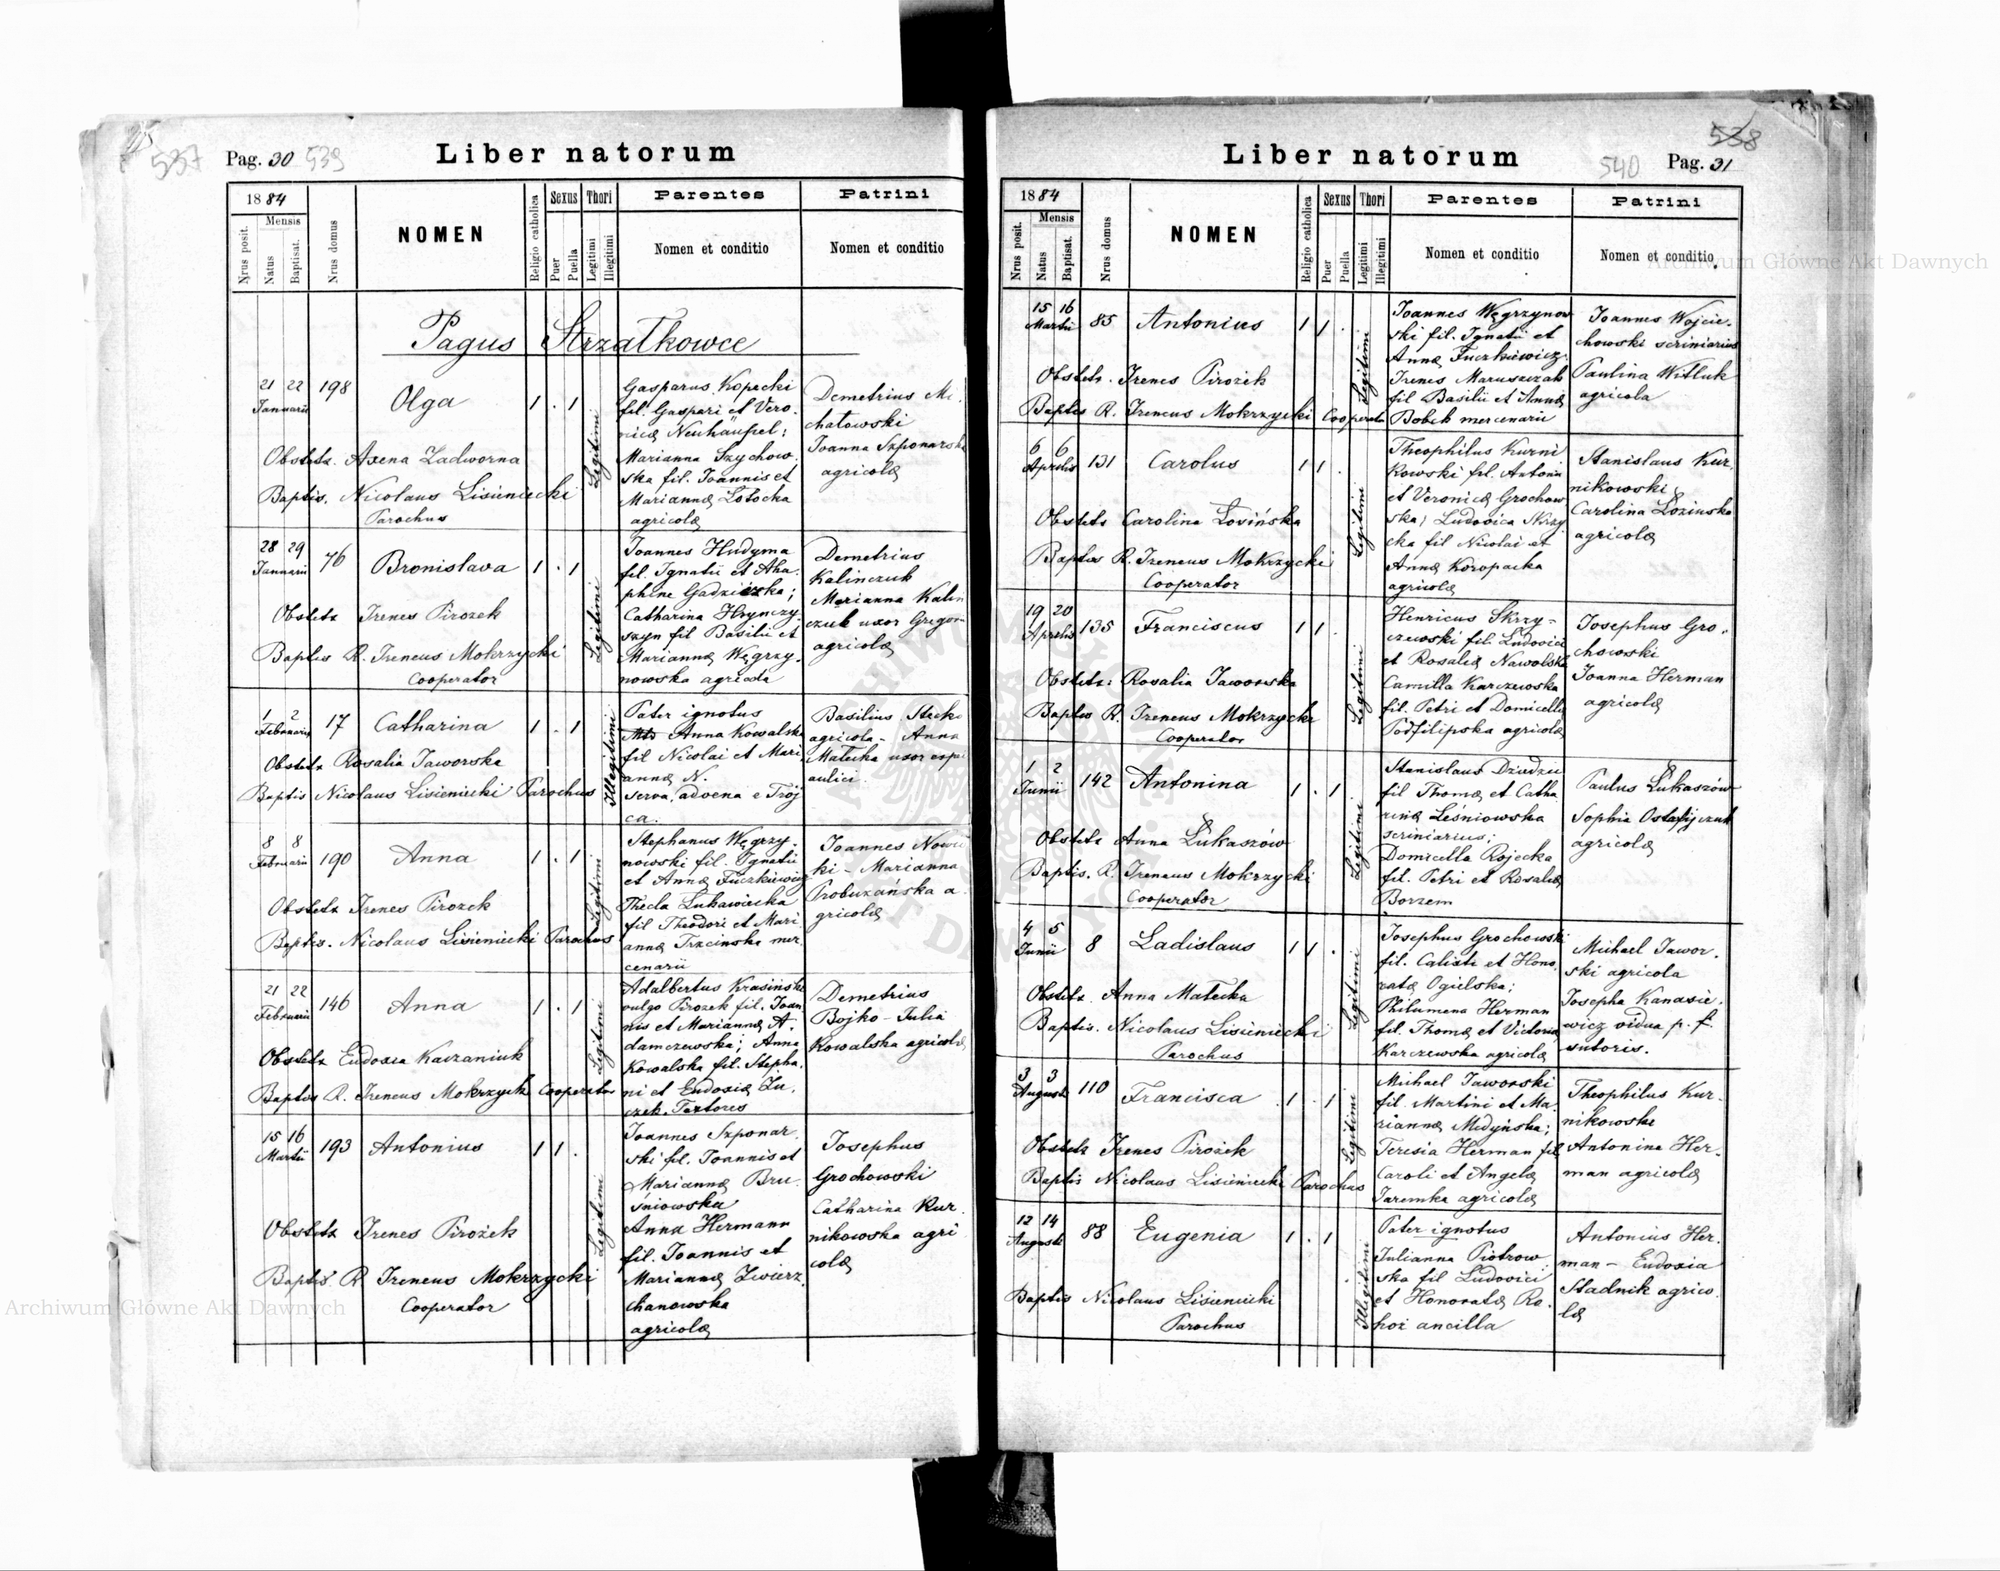 537
Pag. 30 539
Liber natorum
1884
Mensis
Nrus posit.
Natus
Baptisat.
Nrus domus
NOMEN
Religio catholica
Sexus
Puer
Puella
Thori
Legitimi
Illegitimi
Parentes
Nomen et conditio
Patrini
Nomen et conditio
Pagus Strzałkowce
21 22
Januarii
198
Olga
1 . 1
Legitimi
Gasparus Kopecki
fil. Gaspari et Vero.
nicæ Neuhäusel;
Marianna Szychow.
ska fil. Joannis et
Mariannæ Łotocka
agricolæ
Demetrius
chatowski
Joanna Szponarska
agricolæ
Obstetr. Axena Zadworna
Baptis. Nicolaus Lisieniecki
Parochus
28 29
Januarii
76
Bronislava
1 . 1
Legitimi
Joannes Hudyma
fil. Ignatii et Aha.
phine
Catharina Hrynczy
szyn fil Basilii et
Mariannæ Węgrzy.
nowska agricola
Demetrius
Kalinczuk
Marianna Kalin
czuk uxor Gregor
agricolæ
Obstetr Irenes Pirozek
Baptis R. Ireneus Mokrzycki
Cooperator
1 2
Februarii
17
Catharina
1 . 1
Illegitimi
Pater ignotus
Anna Kowalska
fil Nicolai et Mari.
annæ N.
serva, advena e Trój
ca.
Basilius Stecko
agricola - Anna
Matecka uxor
aulici
Obstetr Rosalia Jaworska
Baptis Nicolaus Lisieniecki Parochus
8 8
Februarii
190
Anna
1 . 1
Legitimi
Stephanus Węgrzy.
nowski fil. Ignatii
et Annæ Fuczkiewicz
Thecla Lukawiecka
fil Theodori et Mari
annæ Trzcinska mer.
cenarii
Joannes
ki - Marianna
Probuzańska a
gricolæ
Obstetr Irenes Pirozek
Baptis. Nicolaus Lisieniecki Parochus
21 22
Februarii
146
Anna
1 . 1
Legitimi
Adalbertus Krasiński
vulgo Pirozek fil. Joan
nis et Mariannæ A.
damczewska; Anna
Kowalska fil. Stepha.
ni et Eudoxiæ Zu.
czek. Textores
Demetrius
Bojko - Julia
Kowalska agricolæ
Obstetr Eudoxia Kaczaniuk
Baptis R. Ireneus Mokrzycki Cooperator
15 16
Martii
193
Antonius
1 1 .
Legitimi
Joannes Szponar.
ski fil. Joannis et
Mariannæ Bru.
śniowska
Anna Hermann
fil. Joannis et
Mariannæ Zwierz.
chanowska
agricolæ
Josephus
Grochowski
Catharina Kur
nikowska agri
colæ
Obstetr Irenes Pirożek
Baptis R Ireneus Mokrzycki
Cooperator
538
540 Pag. 31
Liber natorum
1884
Mensis
Nrus posit.
Natus
Baptisat.
Nrus domus
NOMEN
Religio catholica
Sexus
Puer
Puella
Thori
Legitimi
Illegitimi
Parentes
Nomen et conditio
Patrini
Nomen et conditio
15 16
Martii
85
Antonius
1 1 .
Legitimi
Joannes Węgrzynow
ski fil. Ignatii et
Annæ Fuczkiewicz
Irenes Maruszczak
fil Basilii et Annæ
Bobek mercenarii
Joannes Wojcie.
chowski scriniarius
Paulina Witluk
agricola
Obstetr. Irenes Pirożek
Baptis R. Ireneus Mokrzycki Cooperator
6 6
Aprilis
131
Carolus
1 1 .
Legitimi
Theophilus Kurni
kowski fil. Antonii
et Veronicæ Grochow
ska; Ludovica Skrzy
cka fil Nicolai et
Annæ Koropacka
agricolæ
Stanislaus Kur.
nikowski &
Carolina Łozinska
agricolæ
Obstetr Carolina Łosińska
Baptis R. Ireneus Mokrzycki
Cooperator
19 20
Aprilis
135
Franciscus
1 1 .
Legitimi
Henricus Skrzy-
czewski fil. Ludovici
et Rosaliæ Nawolska
Camilla Karczewska
fil. Petri et Domicellæ
Podfilipska agricolæ
Josephus Gro.
chowski
Joanna Herman
agricolæ
Obstetr: Rosalia Jaworska
Baptis R. Ireneus Mokrzycki
Cooperator
1 2
Junii
142
Antonina
1 . 1
Legitimi
Stanislaus
fil Thomæ et Catha
rinæ Leśniowska
scriniarius;
Domicella Rojecka
fil. Petri et Rosaliæ
Borzem
Paulus Łukaszów
Sophia Ostafijczuk
agricolæ
Obstetr Anna Łukaszów
Baptis. R. Ireneus Mokrzycki
Cooperator
4 5
Junii
8
Ladislaus
1 1 .
Legitimi
Josephus Grochowski
fil. Calixti et Hono.
ratæ Ogielska;
Philumena Herman
fil. Thomæ et Victoriæ
Karczewska agricolæ
Michael Jawor.
ski agricola
Josepha Kanasie.
wicz vidua p. f.
sutoris.
Obstetr. Anna Matecka
Baptis. Nicolaus Lisieniecki
Parochus
3 3
Augusti
110
Francisca
1 . 1
Legitimi
Michael Jaworski
fil. Martini et Ma.
riannæ Medyńska;
Teresia Herman fil
Caroli et Angelæ
Jaremka agricolæ
Theophilus Kur.
nikowski
Antonina Her.
man agricolæ
Obstetr Irenes Pirożek
Baptis Nicolaus Lisieniecki Parochus
12 14
Augusti
88
Eugenia
1 . 1
Illegitimi
Pater ignotus
Julianna Piotrow.
ska fil Ludovici
et Honoratæ Ro.
hoż ancilla
Antonius Her.
man - Eudoxia
Stadnik agrico.
læ
Baptis Nicolaus Lisieniecki
Parochus
Archiwum Główne Akt Dawnych
Archiwum Główne Akt Dawnych